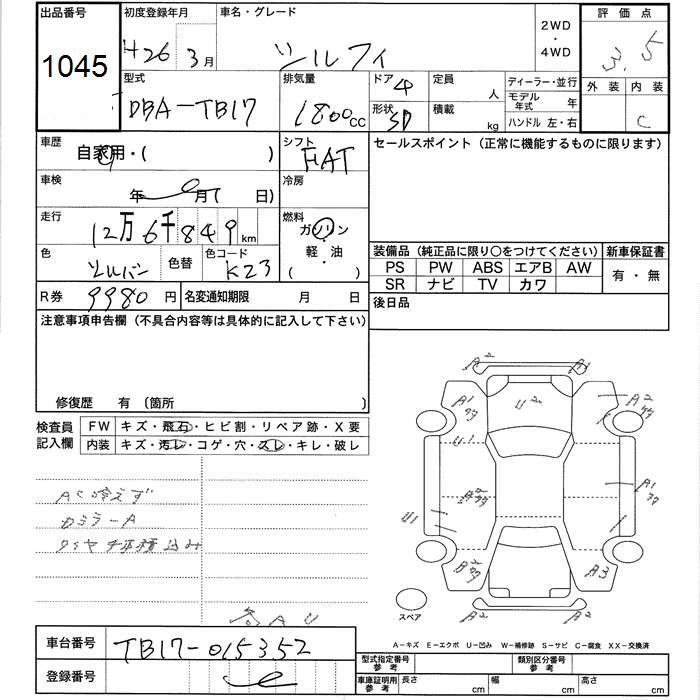 出品番号 初度登録年月 車名・グレード 2WD・4WD 評価点
1045 H26年 3月 シルフィ 3.5
型式 排気量 ドア 4 定員 人 ディーラー・並行 外装 内装
DBA-TB17 1800cc 形状 SD 積載 kg モデル年式 年 C
ハンドル 左・右
車歴 自家用・( ) シフト FAT セールスポイント (正常に機能するものに限ります)
車検 年 月( 日) 冷房
走行 12万6千849km 燃料 ガソリン
軽・油
( )
色 シルバー 色替 色コード K23
装備品 (純正品に限り〇をつけてください) 新車保証書
PS PW ABS エアB AW 有・無
SR ナビ TV カワ
R券 9980円 名変通知期限 月 日 後日品
注意事項申告欄 (不具合内容等は具体的に記入して下さい)
修復歴 有 〔箇所
検査員記入欄 FW キズ・飛石・ヒビ割・リペア跡・X要
内装 キズ・汚レ・コゲ・穴・スレ・キレ・破レ
AC冷えず
Dミラー A
タイヤ4本積込み
A2
A1
A2
U2
U1
A1
U1
A2
A3
A2
A2
スペア
A-キズ E-エクボ U-凹み W-補修跡 S-サビ C-腐食 XX-交換済
車台番号 TB17-015352
登録番号
型式指定番号 参考 類別区分番号 参考
車庫証明用 参考 長さ cm 幅 cm 高さ cm